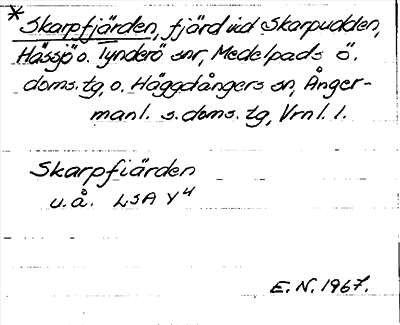 * Skarpfjärden, fjärd vid Skarpudden,
Hässjö o. Tynderö snr, Medelpads ö.
doms. tg, o. Häggdångers sn, Ånger-
manl. s. doms. tg, Vrnl. l.
Skarpfiärden
u.å. LSA Y4
E.N. 1967.